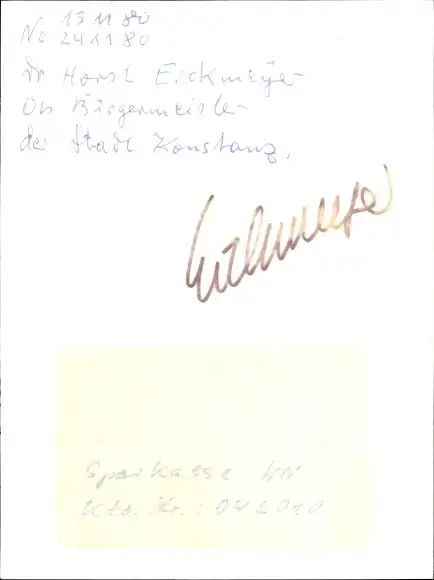 13 11 80
No 24 11 80
Dr Horst Eickmeyer
Ob Bürgermeister
der Stadt Konstanz.
Eickmeyer
Sparkasse KN
Kto. Nr.: 042010